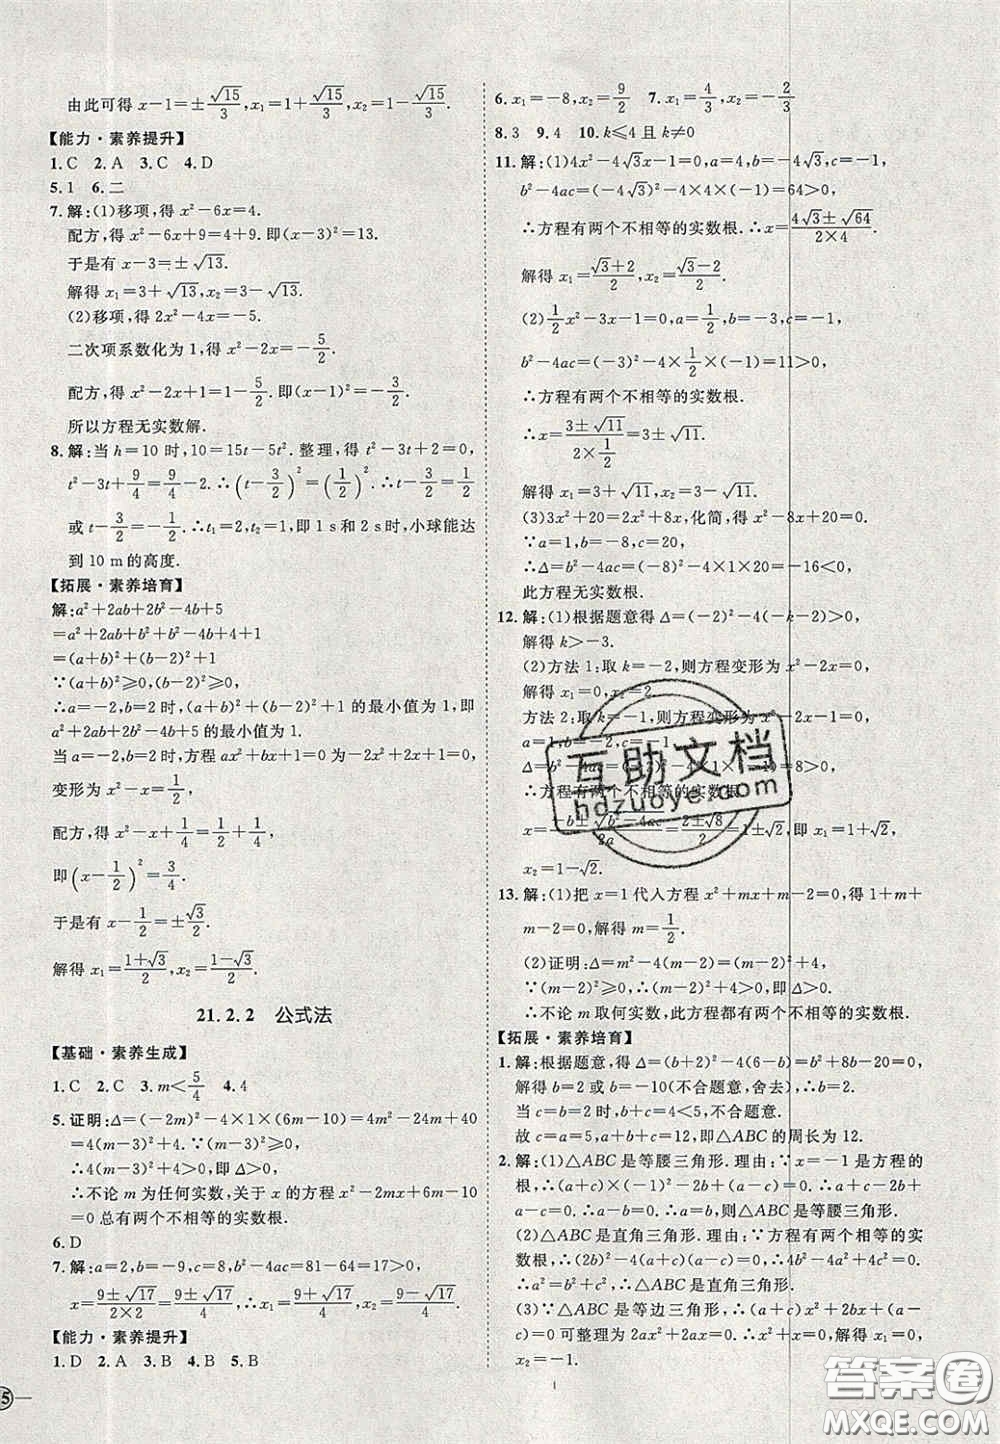 由此可得 x-1=±√15/3,x₁=1+√15/3,x₂=1-√15/3.
【能力·素养提升】
1.C 2.A 3.C 4.D
5.1 6.二
7.解:(1)移项,得 x²-6x=4.
配方,得 x²-6x+9=4+9.即(x-3)²=13.
于是有 x-3=±√13.
解得 x₁=3+√13,x₂=3-√13.
(2)移项,得 2x²-4x=-5.
二次项系数化为 1,得 x²-2x=-5/2.
配方,得 x²-2x+1=1-5/2.即(x-1)²=-3/2.
所以方程无实数解.
8.解:当 h=10 时,10=15t-5t².整理,得 t²-3t=-2,
t²-3t+9/4=9/4-2.∴(t-3/2)²=(1/2)².∴t-3/2=1/2
或 t-3/2=-1/2.∴t₁=2,t₂=1,即 1 s和 2 s时,小球能达
到 10 m的高度.
【拓展·素养培育】
解:a²+2ab+2b²-4b+5
=a²+2ab+b²+b²-4b+4+1
=(a+b)²+(b-2)²+1
∵(a+b)²≥0,(b-2)²≥0,
∴a=-2,b=2 时,(a+b)²+(b-2)²+1 的最小值为 1.即
a²+2ab+2b²-4b+5 的最小值为 1.
当 a=-2,b=2 时,方程 ax²+bx+1=0为-2x²+2x+1=0.
变形为 x²-x=1/2,
配方,得 x²-x+1/4=1/2+1/4,
即(x-1/2)²=3/4.
于是有 x-1/2=±√3/2.
解得 x₁=(1+√3)/2,x₂=(1-√3)/2.
21.2.2 公式法
【基础·素养生成】
1.C 2.C 3.m<5/4 4.4
5.证明:Δ=(-2m)²-4×1×(6m-10)=4m²-24m+40
=4(m-3)²+4.∵(m-3)²≥0,
∴4(m-3)²+4>0,即Δ>0.
∴不论 m 为任何实数,关于 x 的方程 x²-2mx+6m-10
=0 总有两个不相等的实数根.
6.D
7.解:a=2,b=-9,c=2,b²-4ac=81-64=17>0.
x=(9±√17)/(2×2)=(9±√17)/4,x₁=(9+√17)/4,x₂=(9-√17)/4.
【能力·素养提升】
1.D 2.A 3.B 4.B 5.B
6.x₁=-8,x₂=9/2 7.x₁=4/3,x₂=-2/3
8.3 9.4 10.k≤4 且 k≠0
11.解:(1)4x²-4√3x-1=0,a=4,b=-4√3,c=-1,
b²-4ac=(-4√3)²-4×4×(-1)=64>0,
∴方程有两个不相等的实数根.∴x=(4√3±√64)/(2×4).
解得 x₁=(√3+2)/2,x₂=(√3-2)/2.
(2)1/2x²-3x-1=0,a=1/2,b=-3,c=-1,
b²-4ac=(-3)²-4×1/2×(-1)=11>0,
∴方程有两个不相等的实数根.
∴x=(3±√11)/(2×1/2)=3±√11,
解得 x₁=3+√11,x₂=3-√11.
(3)3x²+20=2x²+8x,化简,得 x²-8x+20=0.
∵a=1,b=-8,c=20,
∴Δ=b²-4ac=(-8)²-4×1×20=-16<0,
此方程无实数根.
12.解:(1)根据题意得 Δ=(-2)²-4(-k-2)>0,
解得 k>-3.
(2)方法 1:取 k=-2,则方程变形为 x²-2x=0,
解得 x₁=0,x₂=2.
方法 2:取 k=-1,则方程变形为 x²-2x-1=0,
a=1,b=-2,c=-1,
Δ=b²-4ac=(-2)²-4×1×(-1)=8>0,
∴方程有两个不相等的实数根.
x=(-b±√(b²-4ac))/2a=(2±√8)/(2×1)=1±√2,即 x₁=1+√2,
x₂=1-√2.
13.解:(1)把 x=1 代入方程 x²+mx+m-2=0,得 1+m+
m-2=0,解得 m=1/2.
(2)证明:Δ=m²-4(m-2)=(m-2)²+4,
∵(m-2)²≥0,∴(m-2)²+4>0,即Δ>0,
∴不论 m取何实数,此方程都有两个不相等的实数根.
【拓展·素养培育】
1.解:根据题意,得 Δ=(b+2)²-4(6-b)=b²+8b-20=0,
解得 b=2 或 b=-10(不合题意,舍去),
当 c=b=2时,b+c=4<5,不合题意.
当 c=a=5时,符合题意.
故 a+b+c=12,即△ABC 的周长为 12.
2.解:(1)△ABC 是等腰三角形.理由:∵x=-1 是方程的
根,∴(a+c)×(-1)²-2b+(a-c)=0,∴a+c-2b+a-c
=0,∴a-b=0,∴a=b,则△ABC是等腰三角形.
(2)△ABC是直角三角形.理由:∵方程有两个相等的实
数根,∴(2b)²-4(a+c)(a-c)=0,∴4b²-4a²+4c²=0,
∴a²=b²+c²,∴△ABC是直角三角形.
(3)∵△ABC是等边三角形,∴(a+c)x²+2bx+(a-c)
=0 可整理为 2ax²+2ax=0,∴x²+x=0,解得 x₁=0,
x₂=-1.
互助文档
hdzuoye.com
答案圈
MXQE.COM